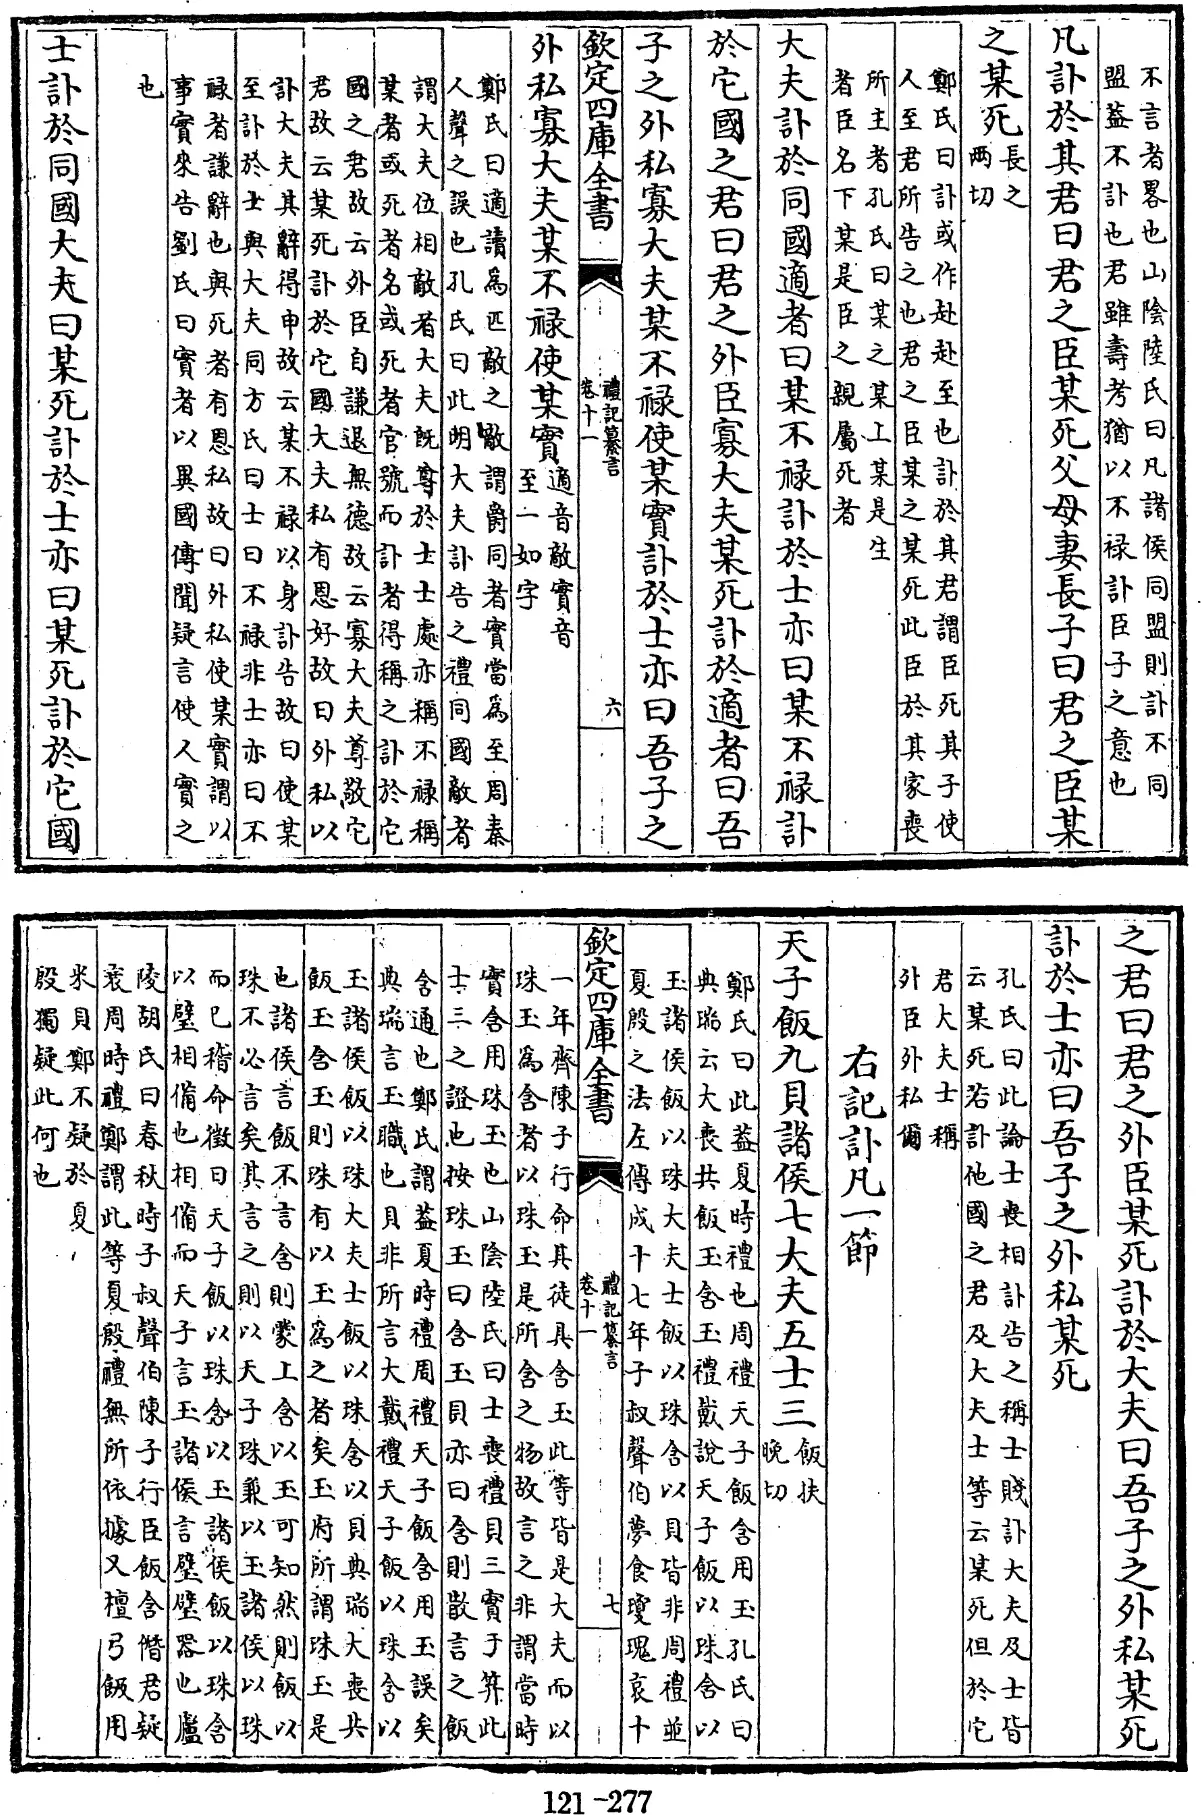 不言者畧也山陰陸氏曰凡諸侯同盟則訃不同
盟蓋不訃也君雖壽考猶以不禄訃臣子之意也
凡訃於其君曰君之臣某死父母妻長子曰君之臣某
之某死長之
两切
鄭氏曰訃或作赴赴至也訃於其君謂臣死其子使
人至君所告之也君之臣某之某死此臣於其家喪
所主者孔氏曰某之某上某是生
者臣名下某是臣之親屬死者
大夫訃於同國適者曰某不禄訃於士亦曰某不禄訃
於它國之君曰君之外臣寡大夫某死訃於適者曰吾
子之外私寡大夫某不禄使某實訃於士亦曰吾子之
欽定四庫全書
禮記纂言
卷十一
六
外私寡大夫某不禄使某實適音敵實音
至一如字
鄭氏曰適讀爲匹敵之敵謂爵同者實當爲至周秦
人聲之誤也孔氏曰此明大夫訃告之禮同國敵者
謂大夫位相敵者大夫既尊於士士處亦稱不禄稱
某者或死者名或死者官號而訃者得稱之訃於它
國之君故云外臣自謙退無德故云寡大夫尊敬它
君故云某死訃於它國大夫私有恩好故曰外私以
訃大夫其辭得申故云某不禄以身訃告故曰使某
至訃於士與大夫同方氏曰士曰不禄非士亦曰不
禄者謙辭也與死者有恩私故曰外私使某實謂以
事實來告劉氏曰實者以異國傳聞疑言使人實之
也
士訃於同國大夫曰某死訃於士亦曰某死訃於它國
之君曰君之外臣某死訃於大夫曰吾子之外私某死
訃於士亦曰吾子之外私某死
孔氏曰此論士喪相訃告之稱士賤訃大夫及士皆
云某死若訃他國之君及大夫士等云某死但於它
君大夫士稱
外臣外私爾
右記訃凡一節
天子飯九貝諸侯七大夫五士三飯扶
晚切
鄭氏曰此蓋夏時禮也周禮天子飯含用玉孔氏曰
典瑞云大喪共飯玉含玉禮戴說天子飯以珠含以
玉諸侯飯以珠大夫士飯以珠含以貝皆非周禮並
夏殷之法左傳成十七年子叔聲伯夢食瓊瑰哀十
欽定四庫全書
禮記纂言
卷十一
七
一年齊陳子行命其徒具含玉此等皆是大夫而以
珠玉為含者以珠玉是所含之物故言之非謂當時
實含用珠玉也山陰陸氏曰士喪禮貝三實于笲此
士三之證也按珠玉曰含玉貝亦曰含則散言之飯
含通也鄭氏謂蓋夏時禮周禮天子飯含用玉誤矣
典瑞言玉職也貝非所言大戴禮天子飯以珠含以
玉諸侯飯以珠大夫士飯以珠含以貝典瑞大喪共
飯玉含玉則珠有以玉爲之者矣玉府所謂珠玉是
也諸侯言飯不言含則蒙上含以玉可知然則飯以
珠不必言矣其言之則以天子珠兼以玉諸侯以珠
而已稽命徵曰天子飯以珠含以玉諸侯飯以珠含
以璧相備也相備而天子言玉諸侯言璧璧器也廬
陵胡氏曰春秋時子叔聲伯陳子行臣飯含僭君疑
衰周時禮鄭謂此等夏殷禮無所依據又檀弓飯用
米貝鄭不疑於夏
殷獨疑此何也
121-277